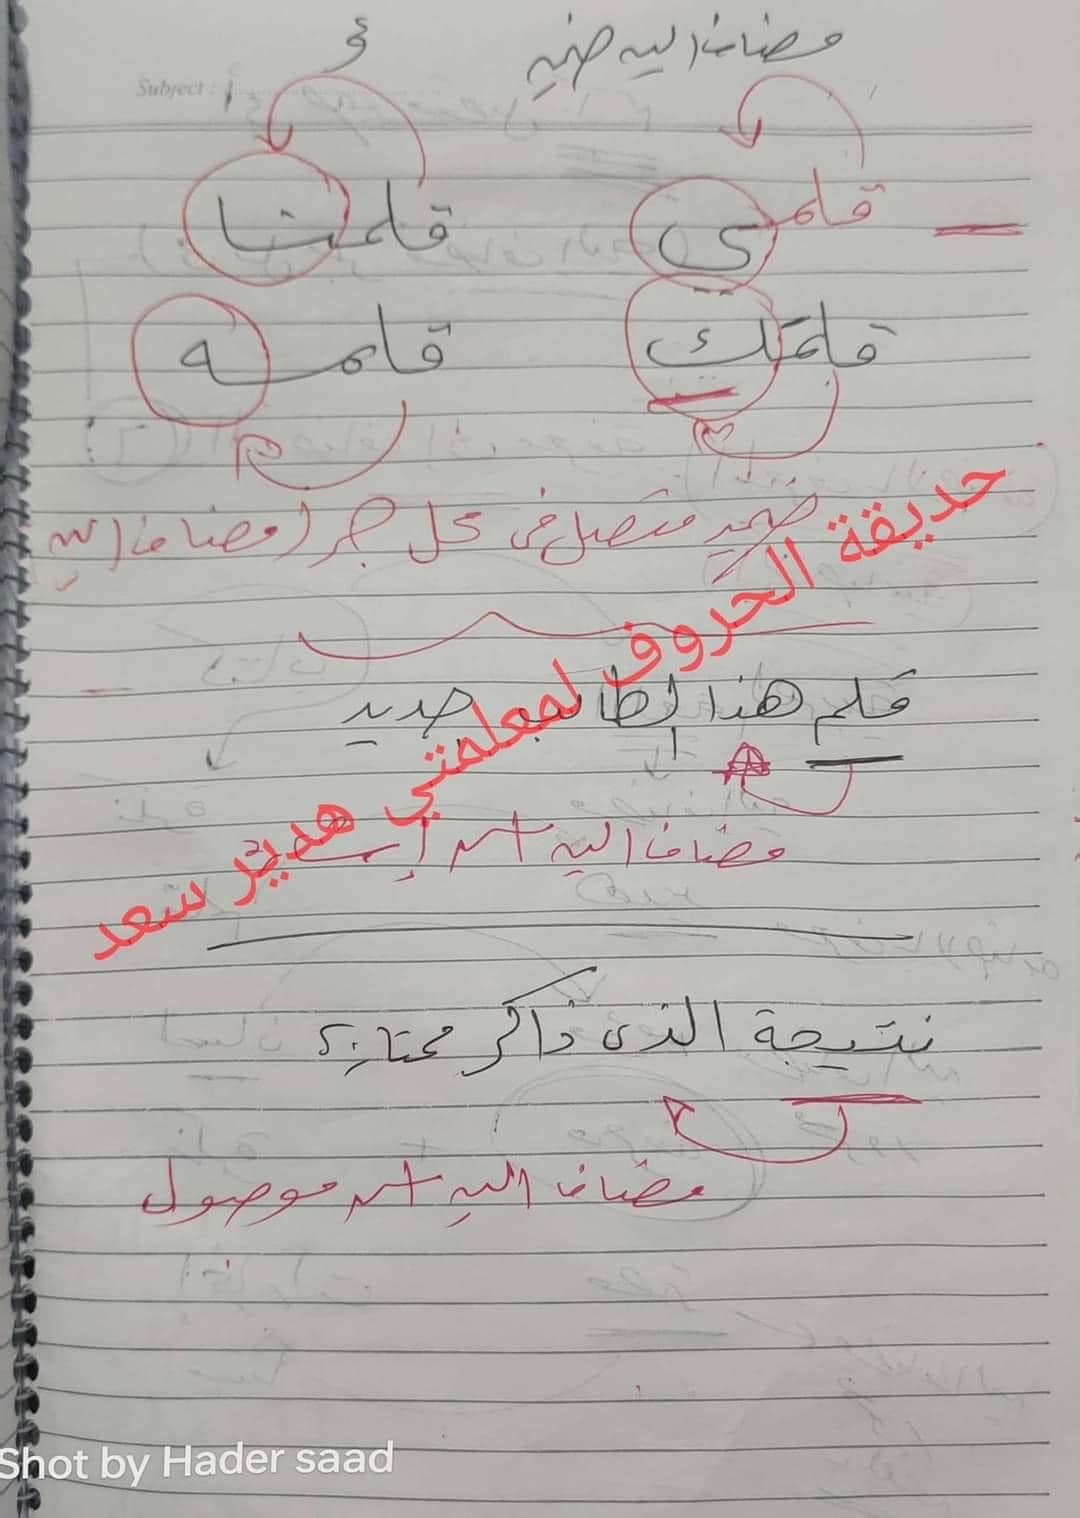 مضاف اليه ضمير
Subject :
قلمى قلمنا
قلمك قلمه
ضمير متصل فى محل جر (مضاف اليه
قلم هذا الطالب جديد
مضاف اليه اسم إشارة
نتيجة الذى ذاكر ممتازة
مضاف اليه اسم موصول
حديقة الحروف لمعلمتي هدير سعد
Shot by Hader saad